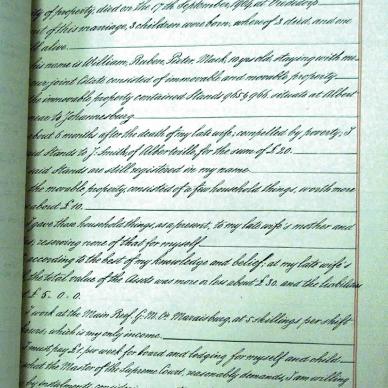 ty of property, died on the 17th September, 1914, at
out of this marriage, 3 children were born, whereof 2 died, and one
ll alive.
his name is William, Ruben, Peter, Mack, 12 yrs old staying with me.
our joint Estate consisted of immovable and movable property.
the immovable property contained Stands 965 & 966, situate at Albert
near to Johannesburg.
about 6 months after the death of my late wife; compelled by poverty; I
said Stands to J. Smith, of Albertville, for the sum of £20.
said Stands are still registered in my name.
the movable property, consisted of a few household things, worth more
about £10.
I gave than household things, as a present, to my late wife's mother and
s, reserving none of that for myself.
according to the best of my knowledge and belief, at my late wife's
the total value of the Assets was more or less about £30. and the liabilities
£ 5. 0. 0.
I work at the Main Reef, G. M. Co. Maraisburg, at 5 shillings per shift
hours, which is my only income.
I must pay £1, per week for board and lodging for myself and child.
what the Master of the Supreme Court, reasonably demands, I am willing
by instalments,